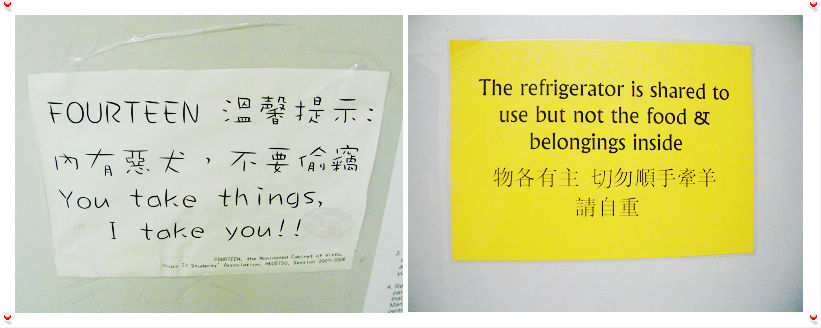 FOURTEEN 溫馨提示:
內有惡犬，不要偷竊
You take things,
I take you!!
FOURTEEN, the Nominated Cabinet of Vista,
House IV Students' Association, HKUSTSU, Session 2007-2008
3.
4. Re
The refrigerator is shared to
use but not the food &
belongings inside
物各有主 切勿順手牽羊
請自重